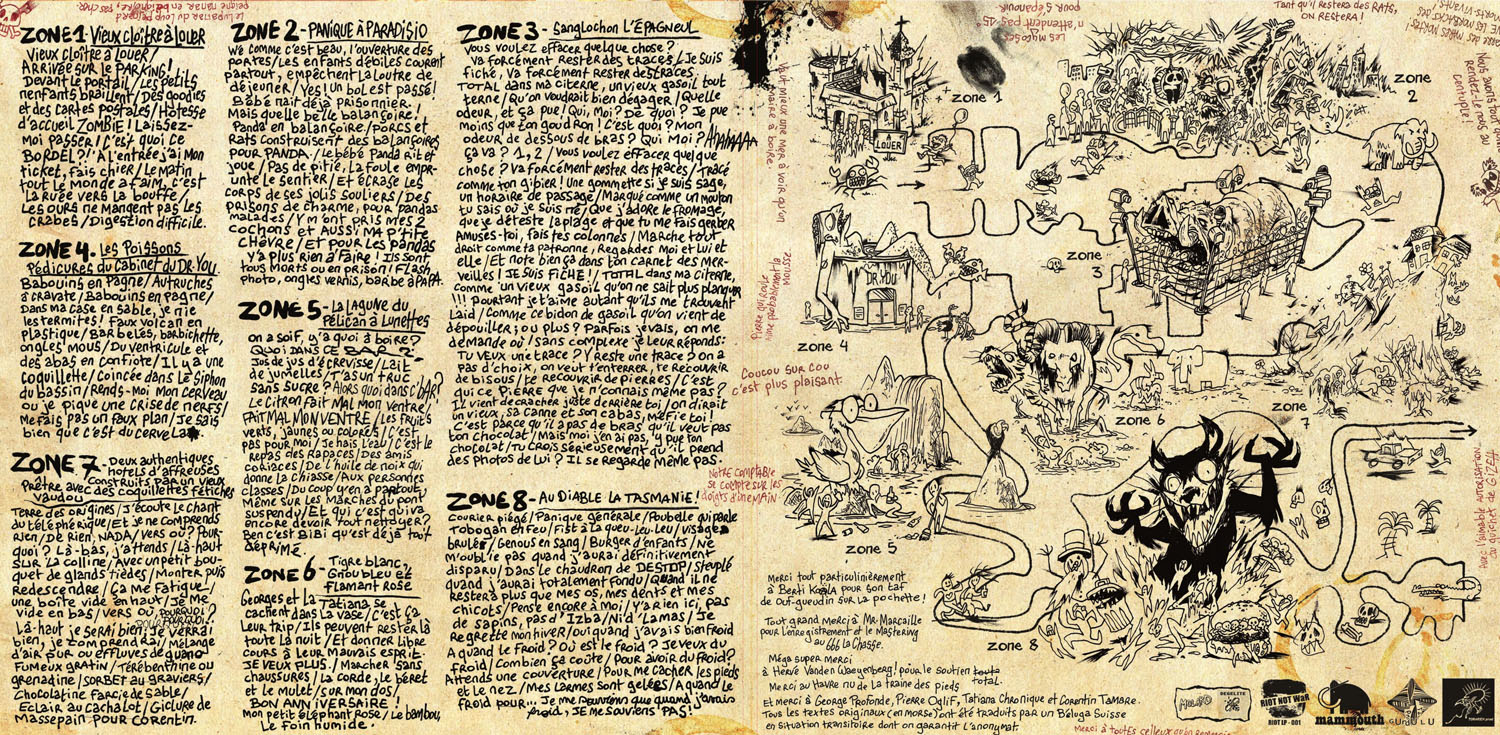 ZONE 1 Vieux cloître à louer
Vieux cloître à louer/
Arrivée sur le parking/
Devant le portail/Les petits
nenfants braillent/Des goodies
et des cartes postales/Hôtesse
d'accueil ZOMBIE!/Laissez-
moi passer/C'est quoi ce
BORDEL?/'A l'entrée j'ai mon
ticket, fais chier/Le matin
tout le monde a faim, c'est
la ruée vers la bouffe/
Les ours ne mangent pas les
crabes/Digestion difficile.
ZONE 2 - PANIQUE À PARADISIO
Wé comme c'est beau, l'ouverture des
portes/Les enfants débiles courent
partout, empêchent la loutre de
déjeuner/Yes! un bol est passé!
Bébé naît déjà prisonnier.
Mais quelle belle balançoire!
Panda en balançoire/Porcs et
Rats construisent des balançoires
pour PANDA-/Le bébé Panda rit et
joue/Pas de pitié, la foule empr-
unte le sentier/Et écrase les
corps de ses jolis souliers/Des
prisons de charme, pour pandas
malades/Y m'ont pris mes?
cochons et aussi ma p'tite
chèvre/Et pour les pandas
y'a plus rien à faire! Ils sont
tous morts ou en prison! Flash
photo, ongles vernis, barbe à papa.
ZONE 3 - Sanglochon L'ÉPAGNEUL
Vous voulez effacer quelque chose?
Va forcément rester des traces/Je suis
fiché, Va forcément rester des traces,
TOTAL dans ma citerne, un vieux gasoil tout
terne/Qu'on voudrait bien dégager/Quelle
odeur, et ça pue! Qui, Moi? De quoi? Je pue
moins que ton goudron! C'est quoi? Mon
odeur de dessous de bras? Qui Moi? AHAAAAA
ça va? 1, 2/Vous voulez effacer quelque
chose? Va forcément rester des traces/Tracé
comme ton gibier! Une gommette si je suis sage,
un horaire de passage/Marqué comme un mouton
tu sais où je suis né/Que j'adore le fromage,
que je déteste la plage et que tu me fais gerber
Amuses-toi, fais tes colonnes/Marche tout
droit comme ta patronne, Regardes moi et lui et
elle/Et note bien ça dans ton carnet des mer-
veilles! JE SUIS FICHÉ!/TOTAL dans ma citerne,
comme un vieux gasoil qu'on ne sait plus planquer
!!! Pourtant je t'aime autant qu'ils me trouvent
Laid/Comme ce bidon de gasoil qu'on vient de
dépouiller; ou plus? Parfois j'évais, on me
demande où/sans complexe je leur réponds:
Tu veux une trace? Y reste une trace? on a
pas d'choix, on veut t'enterrer, te recouvrir
de bisous/te recouvrir de pierres/C'est
qui ce PIERRE que je n'connais même pas?
Il vient de cracher juste derrière toi/on dirait
un vieux, sa canne et son cabas, méfie toi!
C'est parce qu'il a pas de bras qu'il veut pas
ton chocolat/Mais moi j'en ai pas, y pue ton
chocolat/Tu crois sérieusement qu'il prend
des photos de lui? Il se regarde même pas.
ZONE 4. Les Poissons
Pédicures du Cabinet du DR. YOU.
Babouins en pagne/Autruches
à cravate/Babouins en pagne/
Dans ma case en sable, je nie
les termites/Faux volcan en
plastique/Bar belles, barbichette,
ongles mous/Du ventricule et
des abas en confiote/Il y a une
coquillette/Coincée dans le siphon
du bassin/Rends-moi mon cerveau
ou je pique une crise de nerfs/
Me fais pas un faux plan/Je sais
bien que c'est du cervelas.
ZONE 5 - La lagune du
Pélican à Lunettes
on a soif, y'a quoi à boire?
Quoi DANS CE BAR?
Jus de jus d'écrevisse/Lait
de jumelles/T'as un truc
sans sucre? Alors quoi dans c'BAR?
Le citron fait mal mon ventre/
FAIT MAL MON VENTRE/Les fruits
verts, jaunes ou colorés/C'est
pas pour moi/Je hais l'eau/C'est le
repas des rapaces/Des amis
coriaces/De l'huile de noix qui
donne la chiasse/Aux personnes
classes/Du coup y'en a partout,
même sur les marches du pont
suspendu/Et qui c'est qui va
encore devoir tout nettoyer?
Ben c'est BiBi qu'est déjà tout
déprimé.
ZONE 6 - Tigre blanc,
Gnou bleu et
Flamant Rose
Georges et La Tatiana se
cachent dans la vase/C'est ça
leur trip/Ils peuvent rester là
toute la nuit/Et donner libre
cours à leur mauvais esprit.
JE VEUX PLUS/Marcher sans
chaussures/La corde, le béret
et le mulet/sur mon dos/
BON ANNIVERSAIRE!
Mon petit éléphant rose/Le bambou,
Le foin humide.
ZONE 7 - Deux authentiques
hotels d'affreuses
Construits par un vieux
Prêtre avec des coquillettes fétiches
vaudou
Terre des origines/J'écoute le chant
du téléphérique/Et je ne comprends
rien/De rien, NADA/vers où? Pour-
quoi? Là-bas, j'attends/Là-haut
sur la colline/Avec un petit bou-
quet de glands tièdes/Monter puis
Redescendre/Ça me fatigue-/
une boîte vide en haut/Je me
vide en bas/vers où, pourquoi?
pour pourquoi?
Là-haut je serai bien, je verrai
bien, je comprendrai/Mélange
d'air sur ou effluves de guano
Fumeux gratin/Térébenthine ou
grenadine/sorbet au graviers/
Chocolatine farcie de sable/
Eclair au cachalot/Giclure de
Massepain pour Corentin.
ZONE 8 - AU DIABLE LA TASMANIE!
Courier piégé/Panique générale/Poubelle qui parle
Tobogan en feu/Fist à la queu-leu-leu/visages
brulés/Genous en sang/Burger d'enfants/Ne
m'oublie pas quand j'aurai définitivement
disparu/Dans le chaudron de DESTOP/Steuplé
quand j'aurai totalement fondu/Quand il ne
restera plus que mes os, mes dents et mes
chicots/Pense encore à moi/Y'a rien ici, pas
de sapins, pas d'Izba/Ni d'Lamas/Je
regrette mon hiver/oui quand j'avais bien froid
A quand le froid? Où est le froid? Je veux du
froid/Combien ça coûte/Pour avoir du froid?
Attends une couverture/Pour me cacher les pieds
et le nez/Mes larmes sont gelées/A quand le
froid pour... Je me souviens que quand j'avais
froid, JE ME SOUVIENS PAS!
Les mycoses
n'attendent pas 45°
pour s'épanouir
Tant qu'il restera des RATS,
ON RESTERA!
Vaut mieux une mer à voir qu'un
Pierre qui roule
aime probablement la
mousse
Coucou sur cou
c'est plus plaisant
Notre comptable
se compte sur les
doigts d'une MAIN
Avec l'aimable AUTORISATION
au guichet de GIZEH
zone 1
A LOUER
zone 2
zone 3
DR. YOU
zone 4
zone 5
zone 6
zone 7
zone 8
Merci tout particulinièrement
à Berti Koala pour son taf
de Out-gueudin sur la pochette!
Tout grand merci à Mr Marcaille
pour l'enregistrement et le Mastering
au 666 La Chasse.
Méga super merci
à Hervé Vanden Waeyenberg! pour le soutien touta
total.
Merci au Havre nu de la traine des pieds
Et merci à George Profonde, Pierre Oglif, Tatiana Chronique et Corentin Tamare.
Tous les textes originaux (en morse) ont été traduits par un Béluga Suisse
en situation transitoire dont on garantit l'anonymat.
RIOT NOT WAR
RIOT LP - 001
mammouth
GURULU